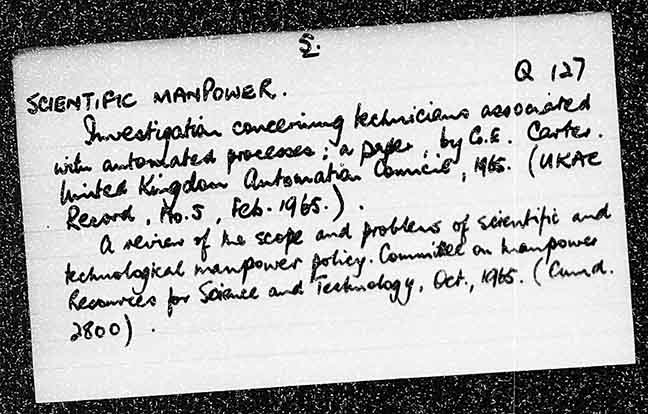 S.
Q 127
SCIENTIFIC MANPOWER.
Investigation concerning technicians associated
with automated processes; a paper, by G.E. Carter.
United Kingdom Automation Council, 1965. (UKAC
Record, No. 5, Feb. 1965.).
A review of the scope and problems of scientific and
technological manpower policy. Committee on Manpower
Resources for Science and Technology, Oct., 1965. (Cmnd.
2800).